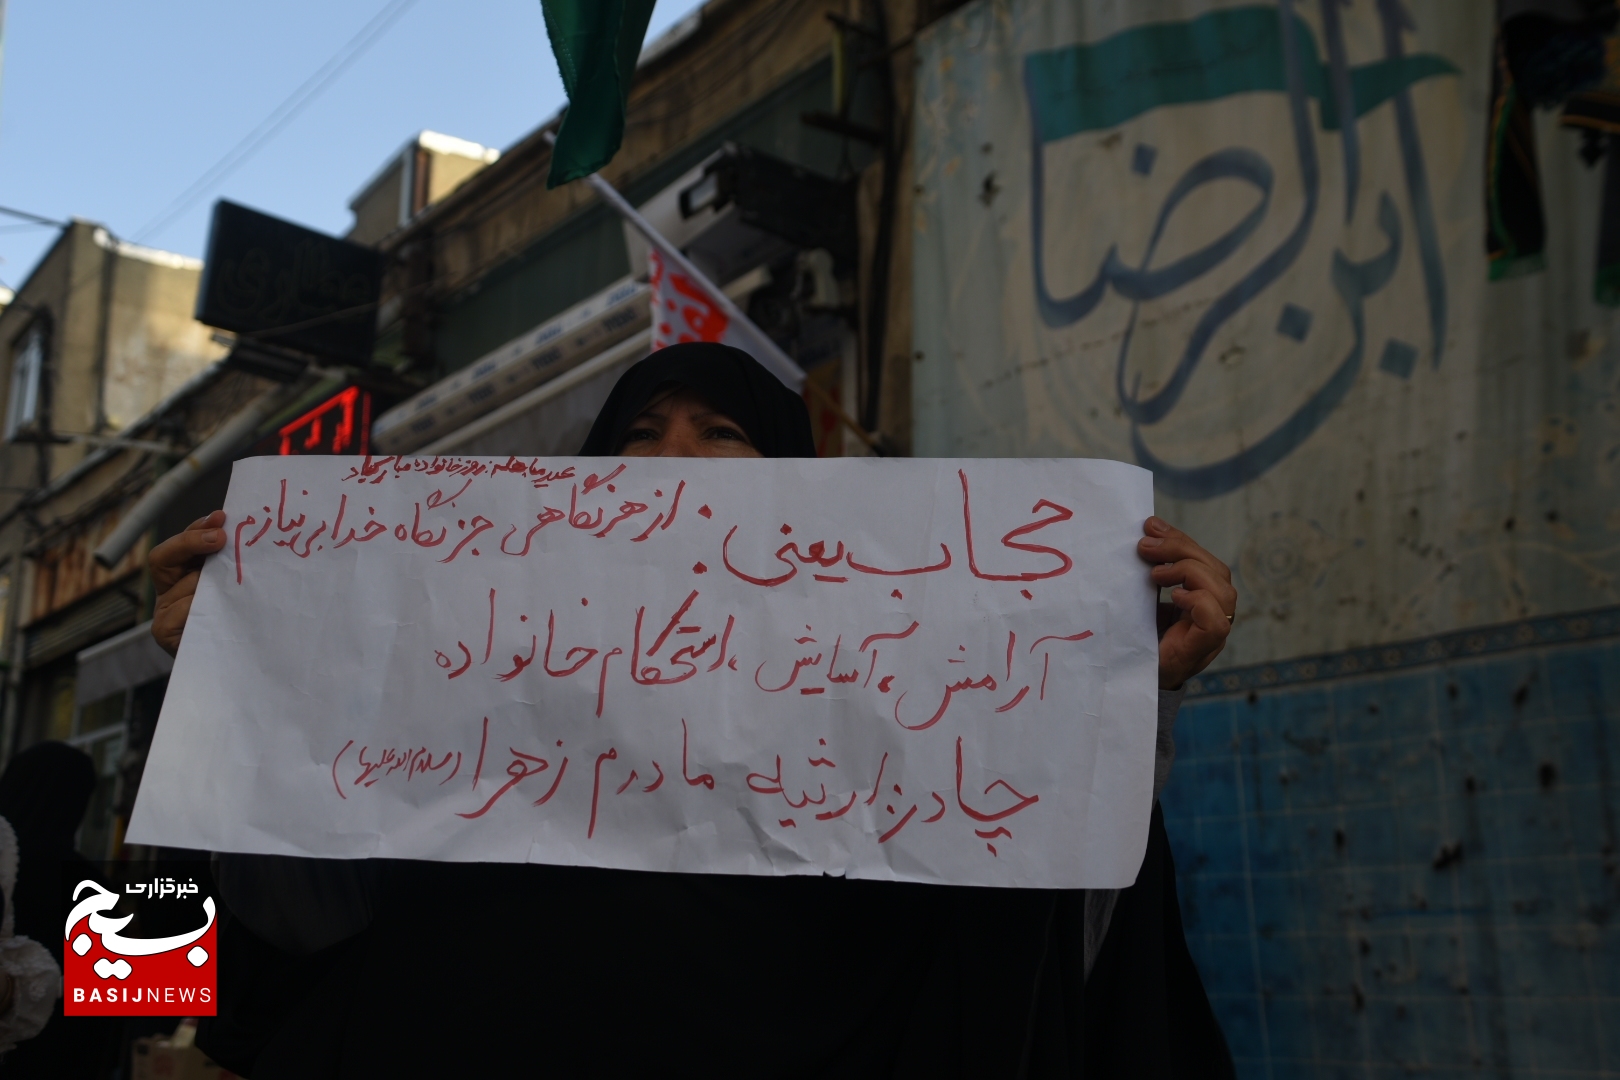 ابن الرضا
عید مباهله روز خانواده مبارکباد
حجاب یعنی: از هر نگاهی جز نگاه خدا بی نیازم
آرامش، آسایش، استحکام خانواده
چادر: ارثیه‌ی مادرم زهرا (سلام الله علیها)
خبرگزاری
بسیج
BASIJNEWS